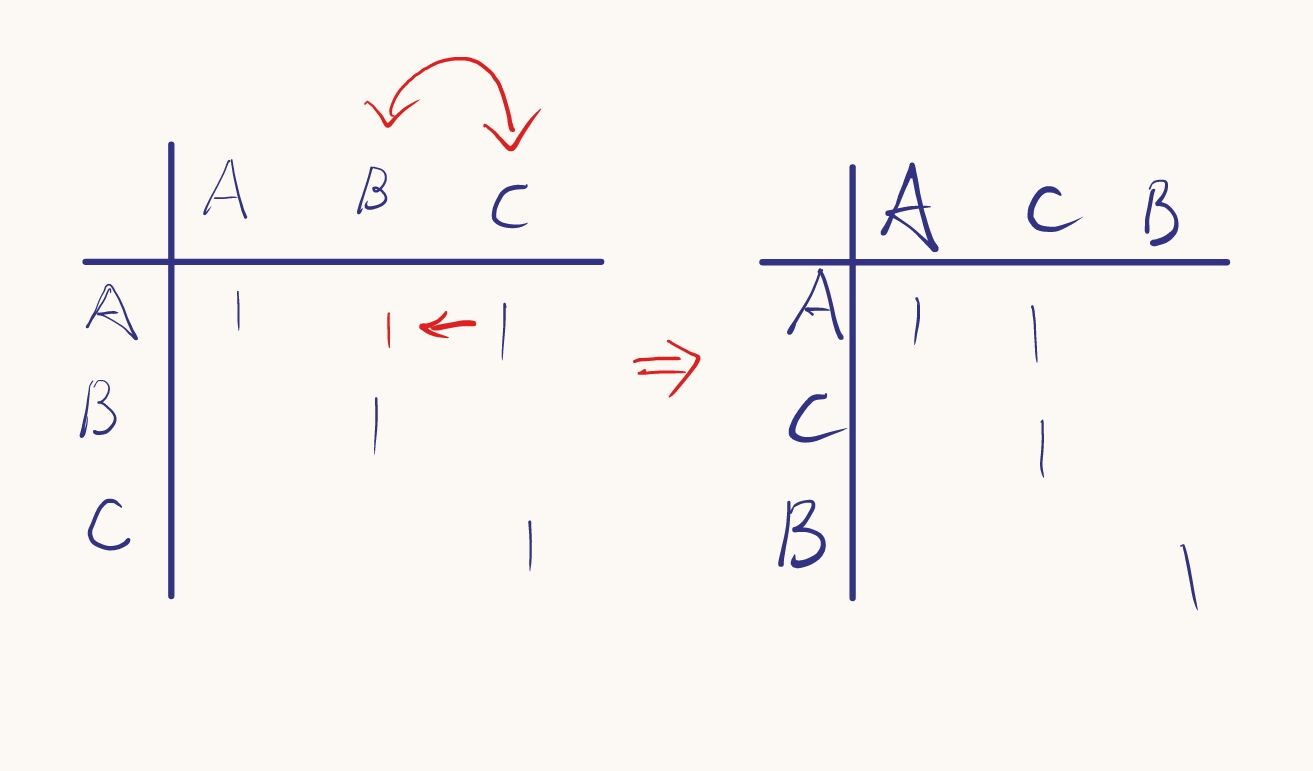 A B C
A 1 1 1
B 1
C 1
A C B
A 1 1
C 1
B 1